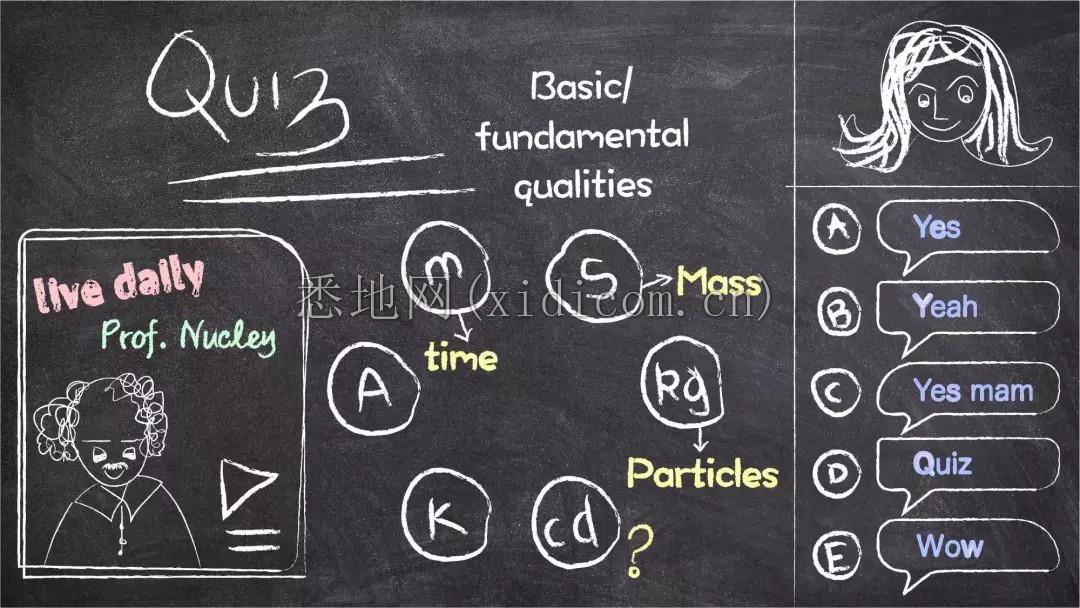 Quiz
Basic/
fundamental
qualities
live daily
Prof. Nucley
m
time
S
Mass
A
kg
Particles
K
cd
?
悉地网(xidicom.cn)
A
Yes
B
Yeah
C
Yes mam
D
Quiz
E
Wow